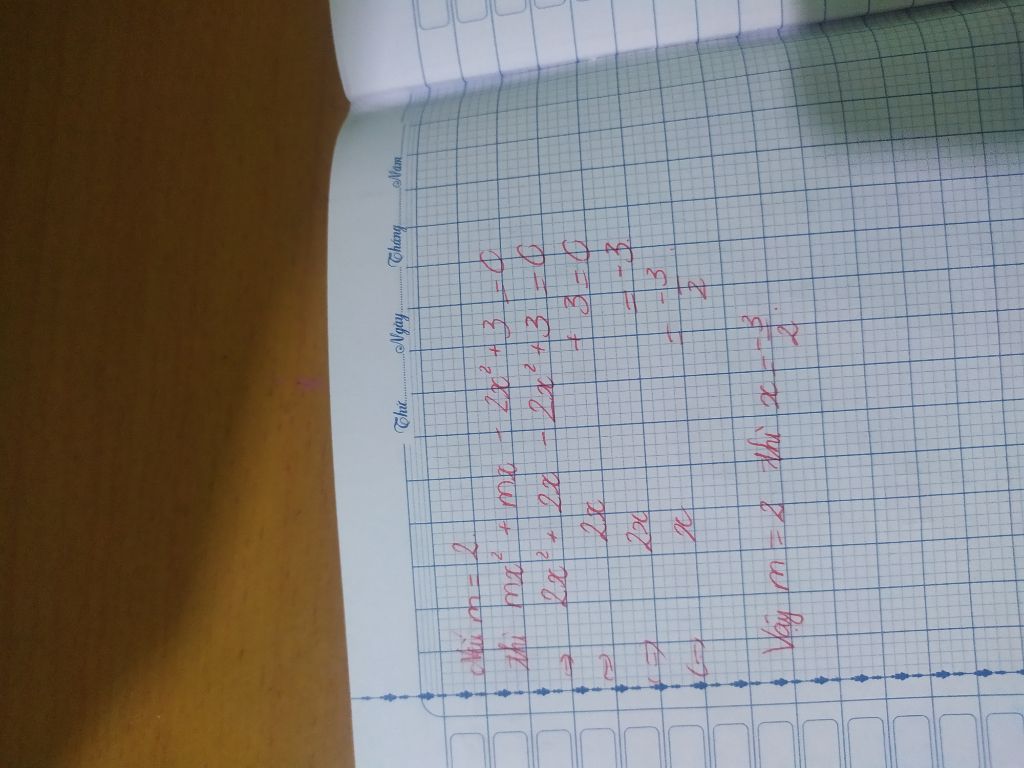 Thứ Ngày Tháng Năm
Nếu m = 2
thì mx² + mx - 2x² + 3 = 0
⇒ 2x² + 2x - 2x² + 3 = 0
⇔ 2x + 3 = 0
⇔ 2x = -3
⇔ x = -3/2
Vậy m = 2 thì x = -3/2.